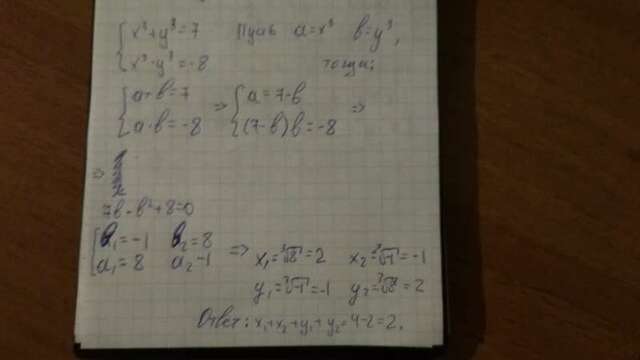 {x³+y³=7 Пусть a=x³ b=y³,
{x³·y³=-8 тогда:
{a+b=7 => {a=7-b
{a·b=-8 {(7-b)b=-8 =>
=>
7b-b²+8=0
[b₁=-1 b₂=8
[a₁=8 a₂-1 => x₁=³√8=2 x₂=³√-1=-1
y₁=³√-1=-1 y₂=³√8=2
Ответ: x₁+x₂+y₁+y₂=4-2=2.